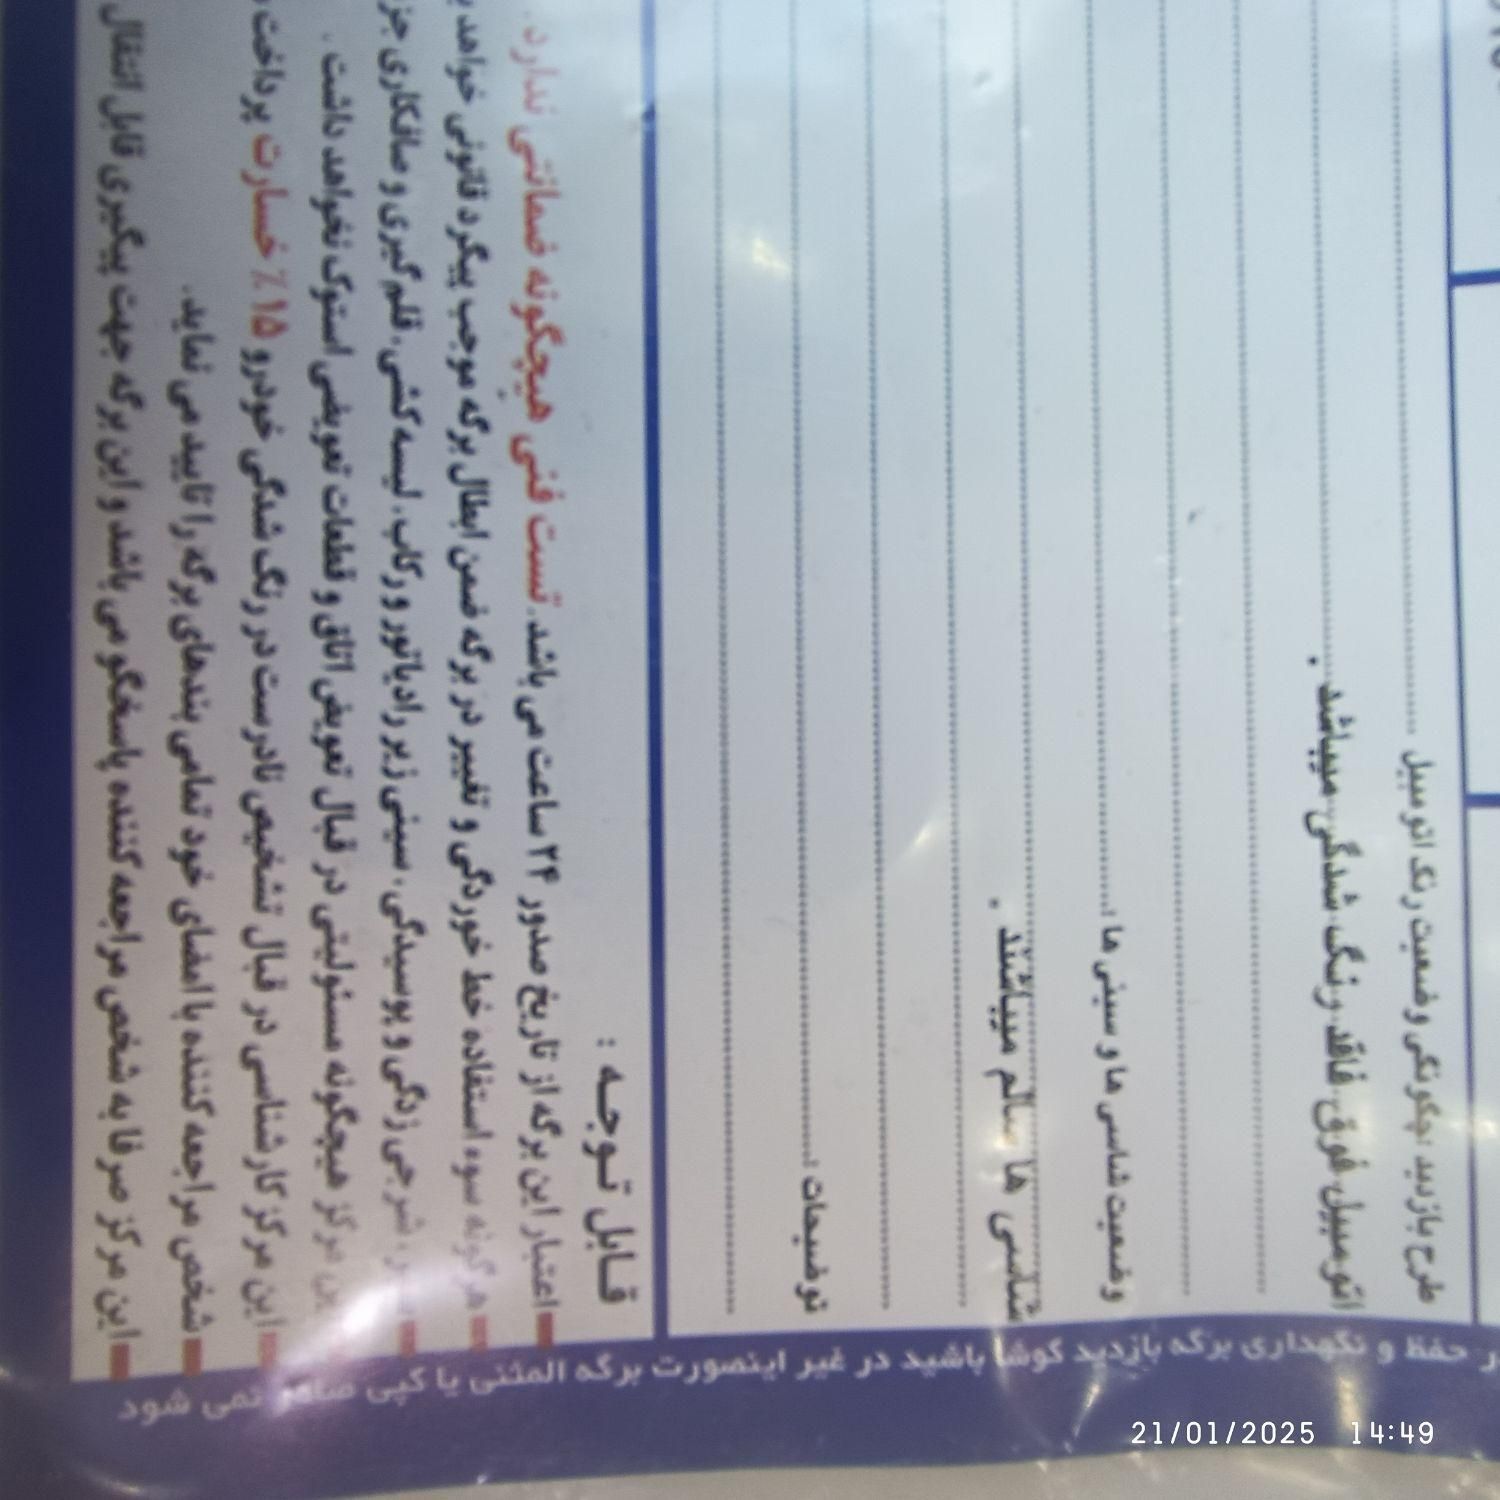 طرح بازدید چگونگی وضعیت رنگ اتومبیل
اتومبیل فوق فاقد رنگ شدگی میباشد .
وضعیت شاسی ها و سینی ها :
شاسی ها سالم میباشند .
توضیحات :
قابل توجه :
اعتبار این برگه از تاریخ صدور ۲۴ ساعت می باشد. تست فنی هیچگونه ضمانتی ندارد .
هرگونه سوء استفاده خط خوردگی و تغییر در برگه ضمن ابطال برگه موجب پیگرد قانونی خواهد
سر شرجی زدگی و پوسیدگی، سینی زیر رادیاتور و رکاب، لیسه کشی، قلم گیری و صافکاری
این مرکز هیچگونه مسئولیتی در قبال تعویض اتاق و قطعات تعویضی استوک نخواهد داشت .
این مرکز کارشناسی در قبال تشخیص نادرست در رنگ شدگی خودرو ۱۵٪ خسارت پرداخت
شخص مراجعه کننده با امضای خود تمامی بندهای برگه را تایید می نماید.
این مرکز صرفا به شخص مراجعه کننده پاسخگو می باشد و این برگه جهت پیگیری قابل انتقال
حفظ و نگهداری برگه بازدید کوشا باشید در غیر اینصورت برگه المثنی یا کپی صادر نمی شود
21/01/2025 14:49